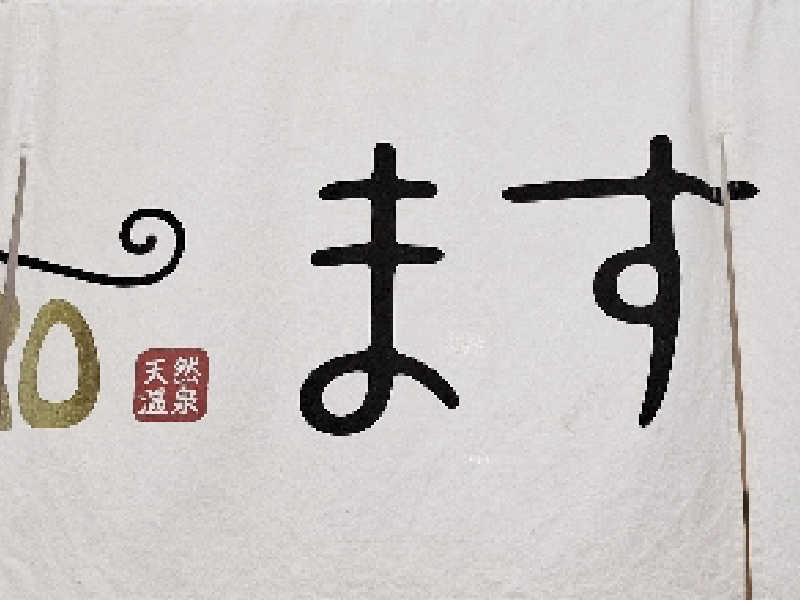 ます
O
天然
温泉